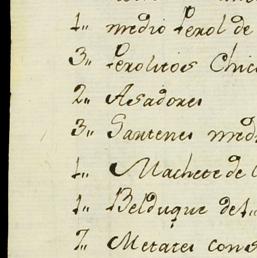 1,, medio Perol de
3,, Perolitos Chic
2,, Asadores
3,, Sartenes med
1,, Machete de
1,, Belduque de
7,, Metates con